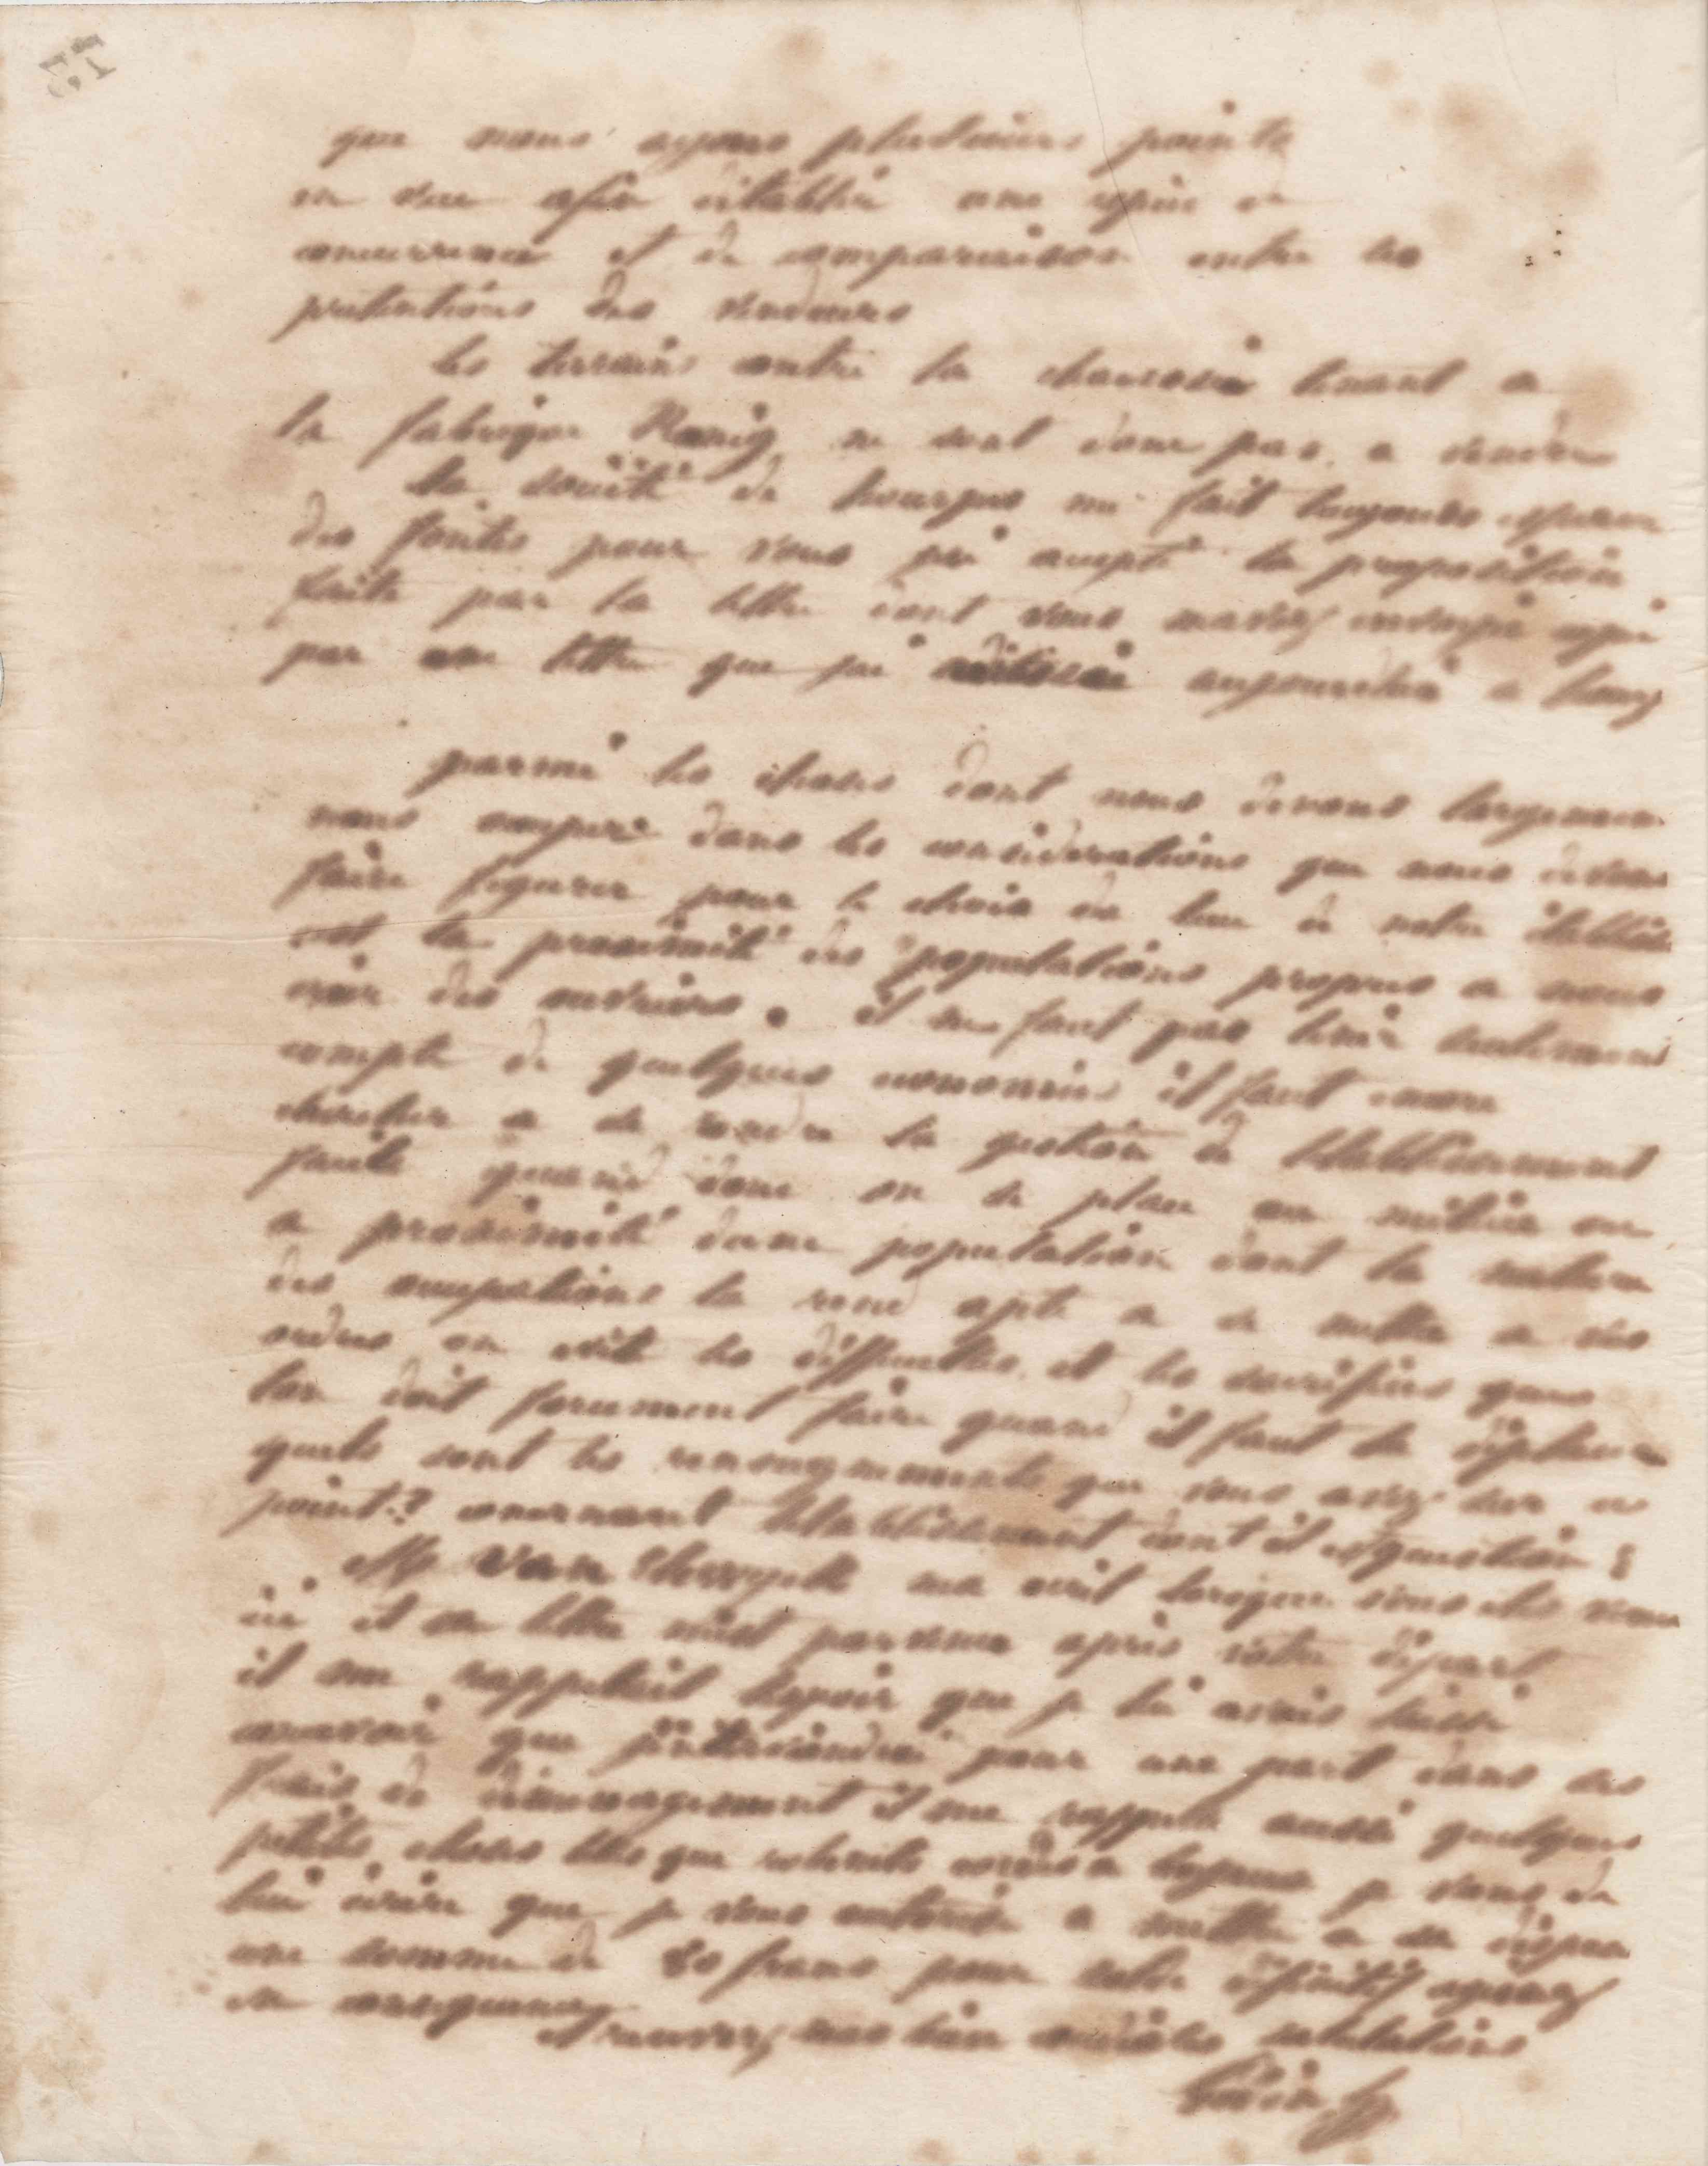 que nous ayons plusieurs points
en vue afin d'établir une espèce de
concurrence et de comparaison entre les
prétentions des vendeurs
les terrains entre la chaussée tenant a
la fabrique ne sont donc pas a vendre
la société de hourpes me fait toujours esperer
des fontes pour vous j'ai accepté la proposition
faite par la lettre dont vous mavez envoyé copie
par une lettre que j'ai adressée aujourdhui a
parmi les choses dont nous devons largement
nous occuper dans les considerations que nous devons
faire figurer pour le choix du lieu de notre
est la proximité des populations propres a nous
des ouvriers. il ne faut pas tenir seulement
compte de quelques economies il faut encore
chercher a se rendre la gestion de letablissement
facile quand donc on se place au milieu ou
a proximité dune population dont la nature
des occupations la rend apte a se mettre a vos
ordres on evite les difficultés et les sacrifices que
lon doit forcement faire quand il faut la déplacer
quels sont les renseignements que vous avez sur ce
point? concernant letablissement dont il est question
Mr Van ma ecrit lorsque vous etes venu
ici et sa lettre mest parvenue après votre départ
il me rappelait lespoir que je lui avais laissé
que pour une part dans les
frais de déménagement il me rappelle aussi quelques
petites choses telles que a je vous de
lui ecrire que je vous autorise a mettre a sa dispos
une somme de francs pour agissez
en consequence
et recevez mes bien sincères salutations